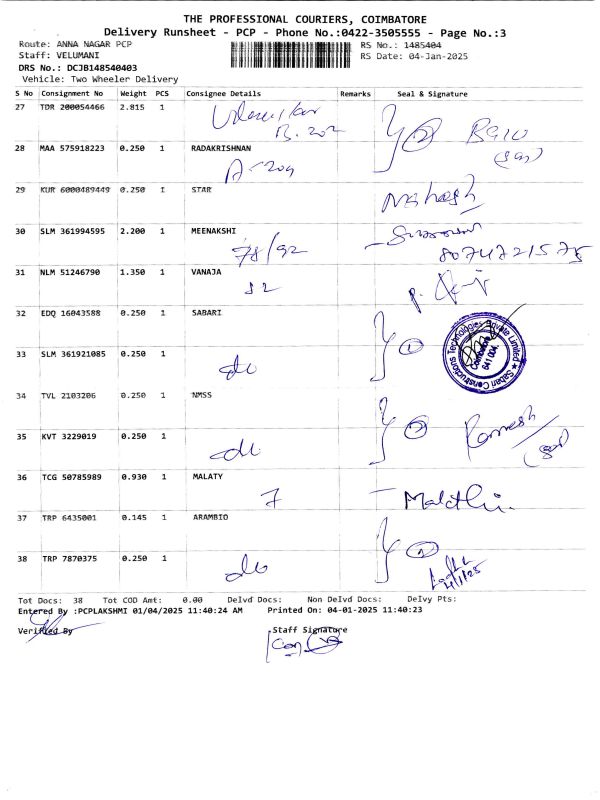 THE PROFESSIONAL COURIERS, COIMBATORE
Delivery Runsheet - PCP - Phone No.:0422-3505555 - Page No.:3
Route: ANNA NAGAR PCP RS No.: 1485404
Staff: VELUMANI RS Date: 04-Jan-2025
DRS No.: DCJB148540403
Vehicle: Two Wheeler Delivery
S No Consignment No Weight PCS Consignee Details Remarks Seal & Signature
27 TDR 200054466 2.815 1
B. 202
28 MAA 575918223 0.250 1 RADAKRISHNAN
A-204
29 KUR 6000489449 0.250 1 STAR
Mahesh
30 SLM 361994595 2.200 1 MEENAKSHI
78/92
8074721575
31 NLM 51246790 1.350 1 VANAJA
32 EDQ 16043588 0.250 1 SABARI
Sabari Constructions Technologies Private Limited
Coimbatore 641 004.
33 SLM 361921085 0.250 1
do
34 TVL 2103206 0.250 1 NMSS
Ramesh
35 KVT 3229019 0.250 1
do
36 TCG 50785989 0.930 1 MALATY
7
Malathi
37 TRP 6435001 0.145 1 ARAMBIO
38 TRP 7870375 0.250 1
do
4/1/25
Tot Docs: 38 Tot COD Amt: 0.00 Delvd Docs: Non Delvd Docs: Delvy Pts:
Entered By :PCPLAKSHMI 01/04/2025 11:40:24 AM Printed On: 04-01-2025 11:40:23
Verified By Staff Signature